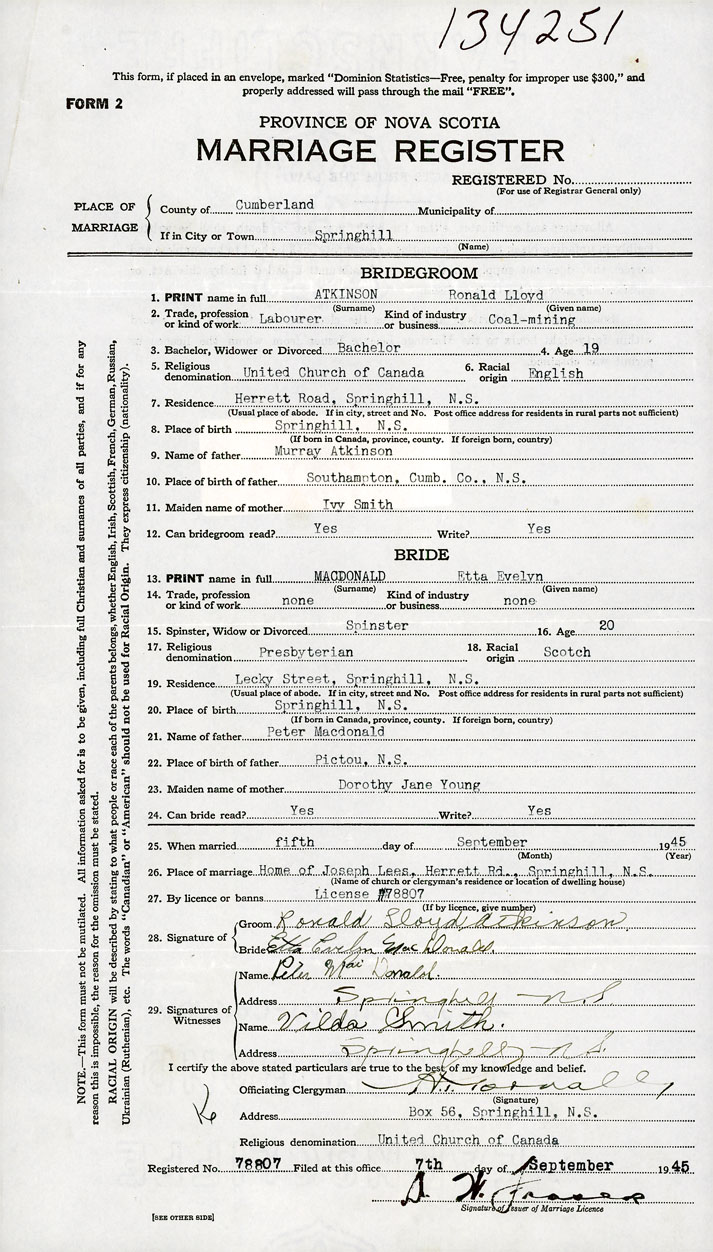 134251
This form, if placed in an envelope, marked "Dominion Statistics—Free, penalty for improper use $300," and
properly addressed will pass through the mail "FREE".
FORM 2
PROVINCE OF NOVA SCOTIA
MARRIAGE REGISTER
REGISTERED No.
(For use of Registrar General only)
PLACE OF MARRIAGE
County of Cumberland Municipality of
If in City or Town Springhill
(Name)
BRIDEGROOM
1. PRINT name in full ATKINSON Ronald Lloyd
(Surname) (Given name)
2. Trade, profession or kind of work Labourer Kind of industry or business Coal-mining
3. Bachelor, Widower or Divorced Bachelor 4. Age 19
5. Religious denomination United Church of Canada 6. Racial origin English
7. Residence Herrett Road, Springhill, N.S.
(Usual place of abode. If in city, street and No. Post office address for residents in rural parts not sufficient)
8. Place of birth Springhill, N.S.
(If born in Canada, province, county. If foreign born, country)
9. Name of father Murray Atkinson
10. Place of birth of father Southampton, Cumb. Co., N.S.
11. Maiden name of mother Ivy Smith
12. Can bridegroom read? Yes Write? Yes
BRIDE
13. PRINT name in full MACDONALD Etta Evelyn
(Surname) (Given name)
14. Trade, profession or kind of work none Kind of industry or business none
15. Spinster, Widow or Divorced Spinster 16. Age 20
17. Religious denomination Presbyterian 18. Racial origin Scotch
19. Residence Lecky Street, Springhill, N.S.
(Usual place of abode. If in city, street and No. Post office address for residents in rural parts not sufficient)
20. Place of birth Springhill, N.S.
(If born in Canada, province, county. If foreign born, country)
21. Name of father Peter Macdonald
22. Place of birth of father Pictou, N.S.
23. Maiden name of mother Dorothy Jane Young
24. Can bride read? Yes Write? Yes
25. When married fifth day of September 1945
(Month) (Year)
26. Place of marriage Home of Joseph Lees, Herrett Rd., Springhill, N.S.
(Name of church or clergyman's residence or location of dwelling house)
27. By licence or banns License #78807
(If by licence, give number)
28. Signature of
Groom Ronald Lloyd Atkinson
Bride Etta Evelyn Mac Donald.
29. Signatures of Witnesses
Name Peter Mac Donald.
Address Springhill N.S
Name Vilda Smith.
Address Springhill N.S.
I certify the above stated particulars are true to the best of my knowledge and belief.
Officiating Clergyman
(Signature)
Address Box 56, Springhill, N.S.
Religious denomination United Church of Canada
Registered No. 78807 Filed at this office 7th day of September 1945
Signature of Issuer of Marriage Licence
[SEE OTHER SIDE]
NOTE.—This form must not be mutilated. All information asked for is to be given, including full Christian and surnames of all parties, and if for any
reason this is impossible, the reason for the omission must be stated.
RACIAL ORIGIN will be described by stating to what people or race each of the parents belongs, whether English, Irish, Scottish, French, German, Russian,
Ukrainian (Ruthenian), etc. The words "Canadian" or "American" should not be used for Racial Origin. They express citizenship (nationality).